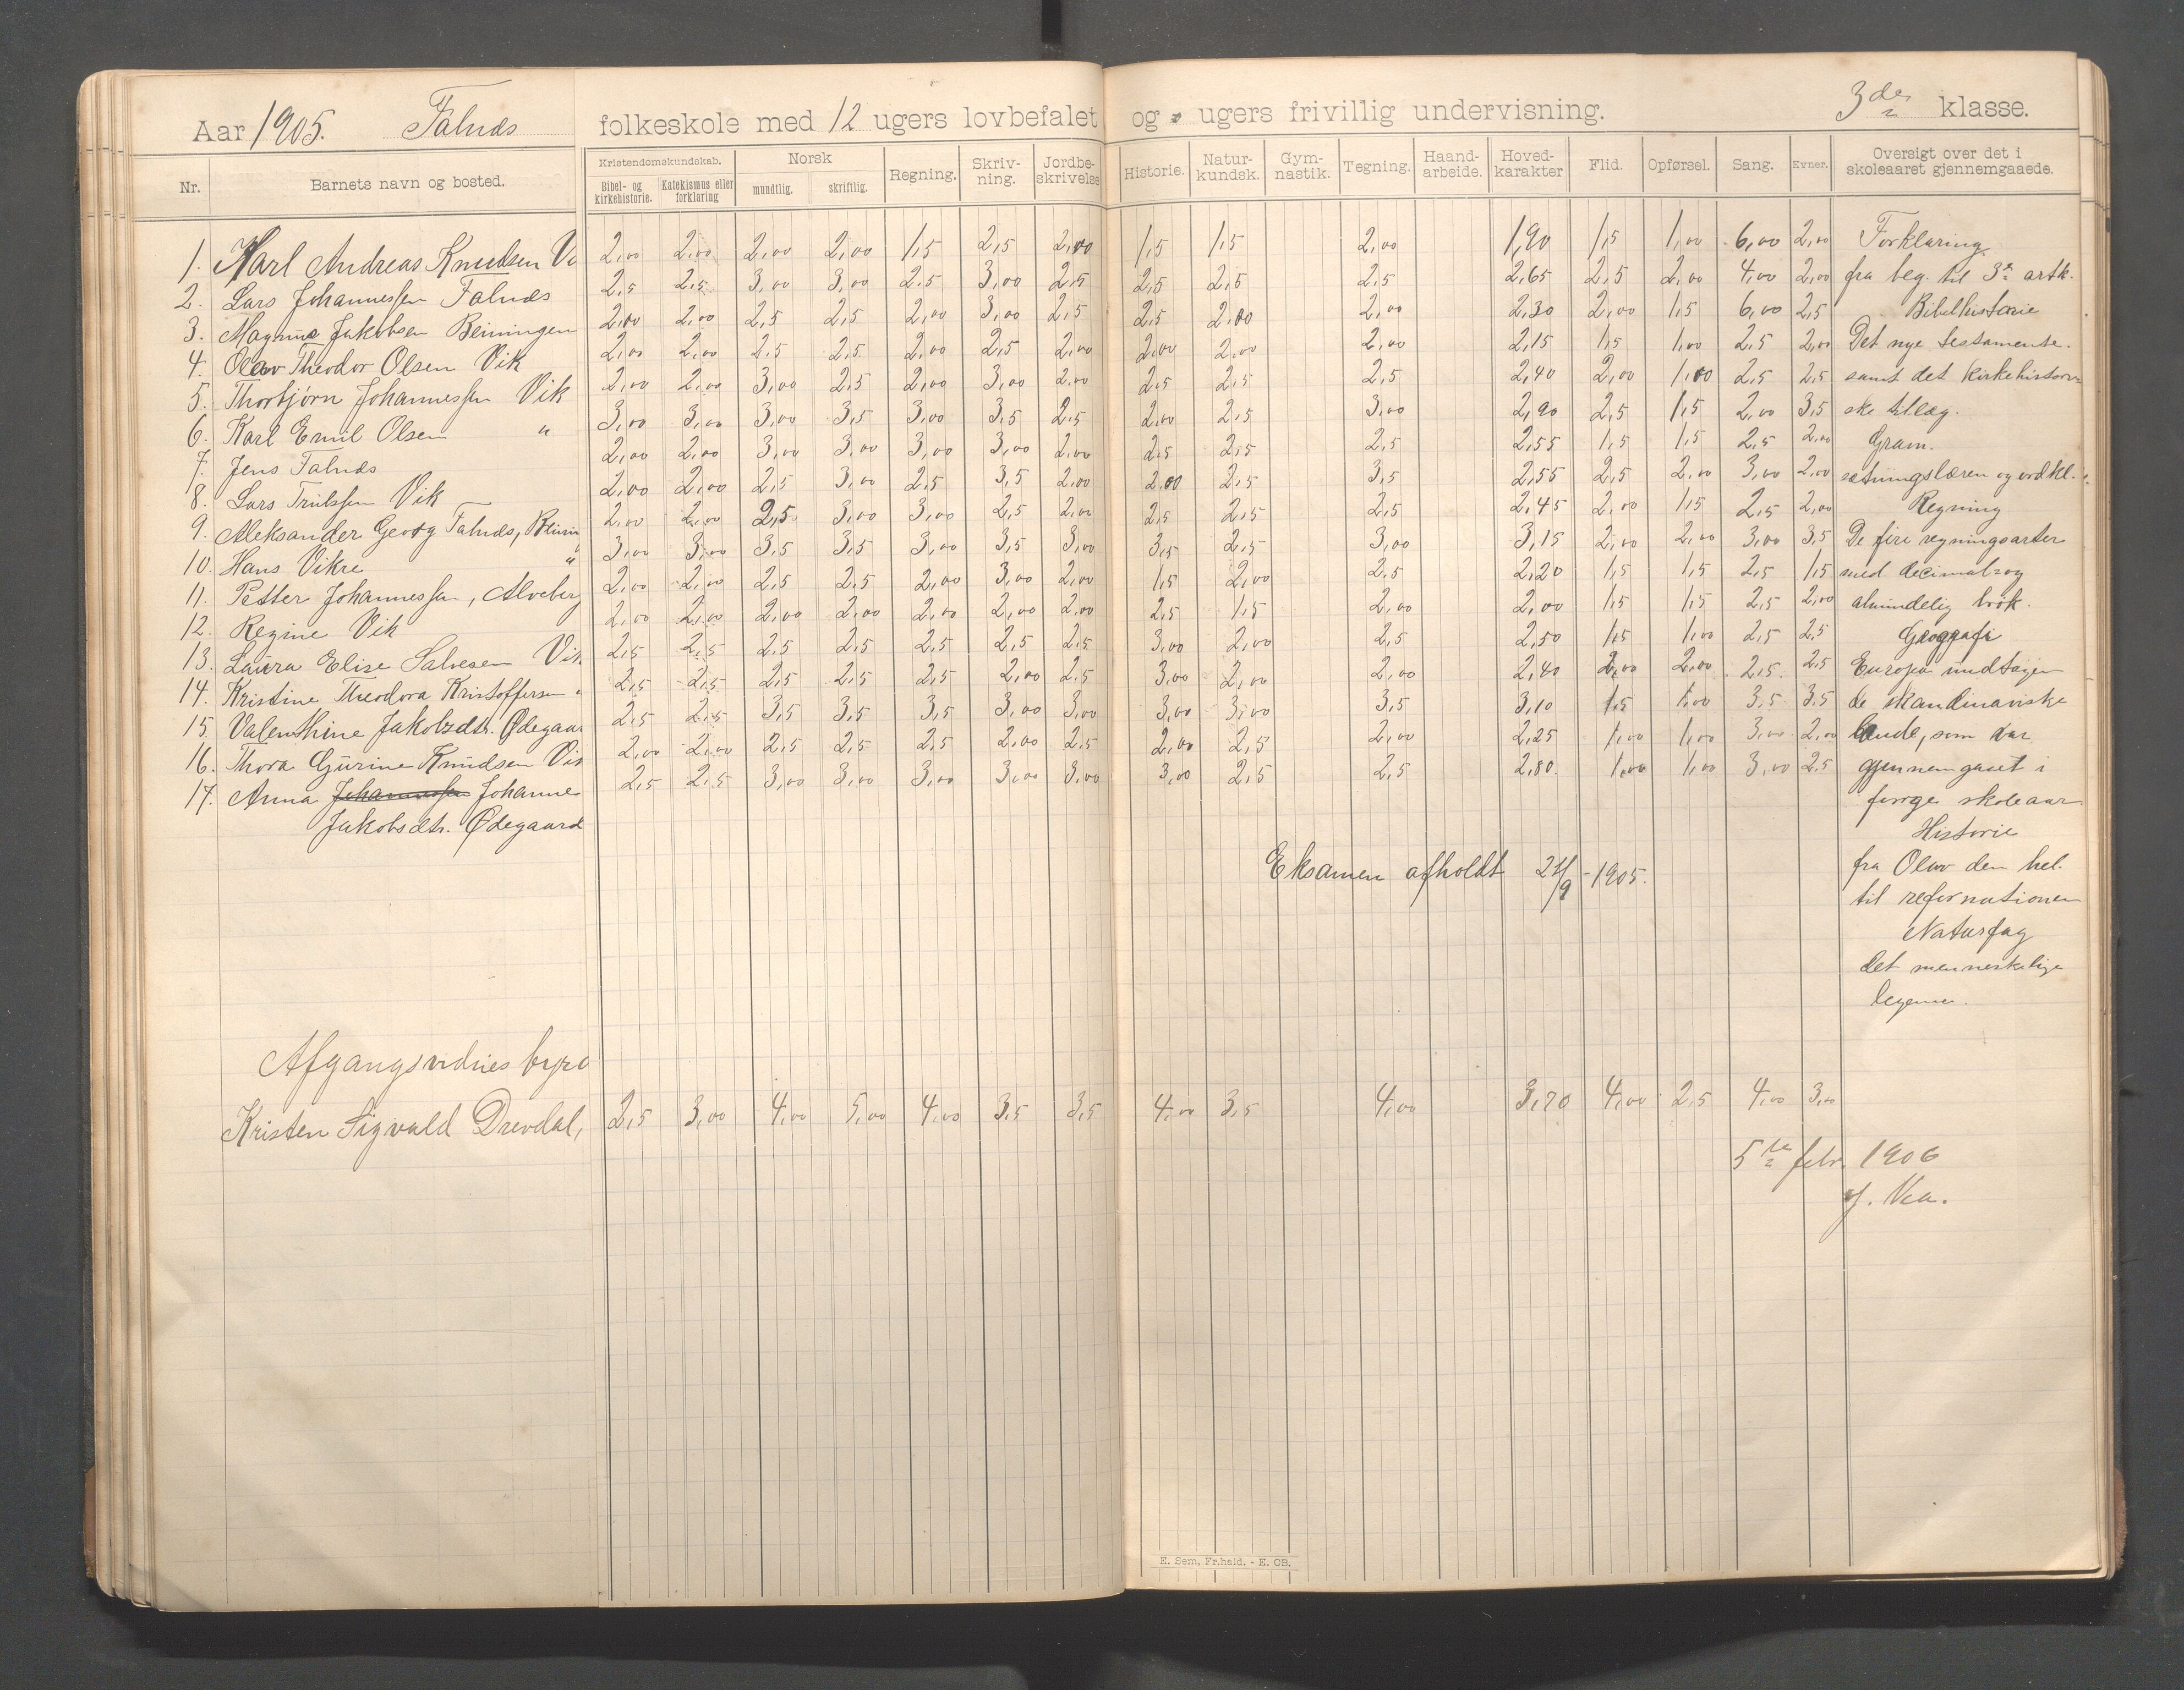 Aar 1905. Falnæs folkeskole med 12 ugers lovbefalet og ugers frivillig undervisning. 3de klasse.
Nr. Barnets navn og bosted. Kristendomskundskab. Bibel- og kirkehistorie. Katekismus eller forklaring Norsk mundtlig. skriftlig. Regning. Skriv-ning. Jordbe-skrivelse Historie. Natur-kundsk. Gym-nastik. Tegning. Haand-arbeide. Hoved-karakter Flid. Opførsel. Sang. Evner. Oversigt over det i skoleaaret gjennemgaaede.
1. Karl Andreas Knudsen Vi 2,00 2,00 2,00 2,00 1,5 2,5 2,00 1,5 1,5 2,00 1,90 1,5 1,00 6,00 2,00 Forklaring
2. Lars Johannessen Falnæs 2,5 2,5 3,00 3,00 2,5 3,00 2,5 2,5 2,5 2,5 2,65 2,5 2,00 4,00 2,00 fra beg. til 3die artk.
3. Magnus Jakobsen Beiningen 2,00 2,00 2,5 2,5 2,00 3,00 2,5 2,5 2,00 2,00 2,30 2,00 1,5 6,00 2,5 Bibelhistorie
4. Olav Theodor Olsen Vik 2,00 2,00 2,5 2,5 2,00 2,5 2,00 2,00 2,00 2,00 2,15 1,5 1,00 2,5 2,00 Det nye testamente.
5. Thorbjørn Johannessen Vik 2,00 2,00 3,00 2,5 2,00 3,00 2,00 2,5 2,5 2,5 2,40 2,00 1,00 2,5 2,5 samt det kirkehistori-
6. Karl Emil Olsen " 3,00 3,00 3,00 3,5 3,00 3,5 2,5 2,00 2,5 3,00 2,90 2,5 1,5 2,00 3,5 ske tillæg.
7. Jens Falnæs 2,00 2,00 3,00 3,00 3,00 3,00 2,00 2,5 2,5 2,5 2,55 1,5 1,5 2,5 2,00 Gram.
8. Lars Trulssen Vik 2,00 2,00 2,5 3,00 2,5 3,5 2,00 2,00 2,5 3,5 2,55 2,5 2,00 3,00 2,00 sætningslæren og ordkl.
9. Aleksander Georg Falnæs, 2,00 2,00 2,5 3,00 3,00 2,5 2,00 2,5 2,5 2,5 2,45 2,00 1,5 2,5 2,00 Regning
10. Hans Vikre " 3,00 3,00 3,5 3,5 3,00 3,5 3,00 3,5 2,5 3,00 3,15 2,00 2,00 3,00 3,5 De fire regningsarter
11. Petter Johannessen, Alveberg 2,00 2,00 2,5 2,5 2,00 3,00 2,00 1,5 2,00 2,5 2,20 1,5 1,5 2,5 1,5 med decimal- og
12. Regine Vik 2,00 2,00 2,00 2,00 2,00 2,00 2,00 2,5 1,5 2,00 2,00 1,5 1,5 2,5 2,00 almindelig brøk.
13. Laura Elise Salvesen Vik 2,5 2,5 2,5 2,5 2,5 2,5 2,5 3,00 2,00 2,5 2,50 1,5 1,00 2,5 2,5 Geografi
14. Kristine Theodora Kristoffersen " 2,5 2,5 2,5 2,5 2,5 2,00 2,5 3,00 2,00 2,00 2,40 2,00 2,00 2,5 2,5 Europa undtagen
15. Valenthine Jakobsdtr. Ødegaar 2,5 2,5 3,5 3,5 3,5 3,00 3,00 3,00 3,00 3,5 3,10 1,5 1,00 3,5 3,5 de skandinaviske
16. Thora Gurine Knudsen Vik 2,00 2,00 2,5 2,5 2,5 2,00 2,5 2,00 2,5 2,00 2,25 1,00 1,00 3,00 2,00 lande, som var
17. Anna Johannessen Johanne 2,5 2,5 3,00 3,00 3,00 3,00 3,00 3,00 2,5 2,5 2,80. 1,00 1,00 3,00 2,5 gjennemgaaet i
Jakobsdtr. Ødegaard forrige skoleaar
Historie
Eksamen afholdt 21/9-1905. fra Olav den hel.
til refornationen
Naturfag
det menneskelige
legeme.
Afgangsvidnesbyrd
Kristen Sigvald Drevdal, 2,5 3,00 4,00 5,00 4,00 3,5 3,5 4,00 3,5 4,00 3,70 4,00 2,5 4,00 3,00
5te febr. 1906
J. Vea.
E. Sem, Fr.hald. - E. CB.